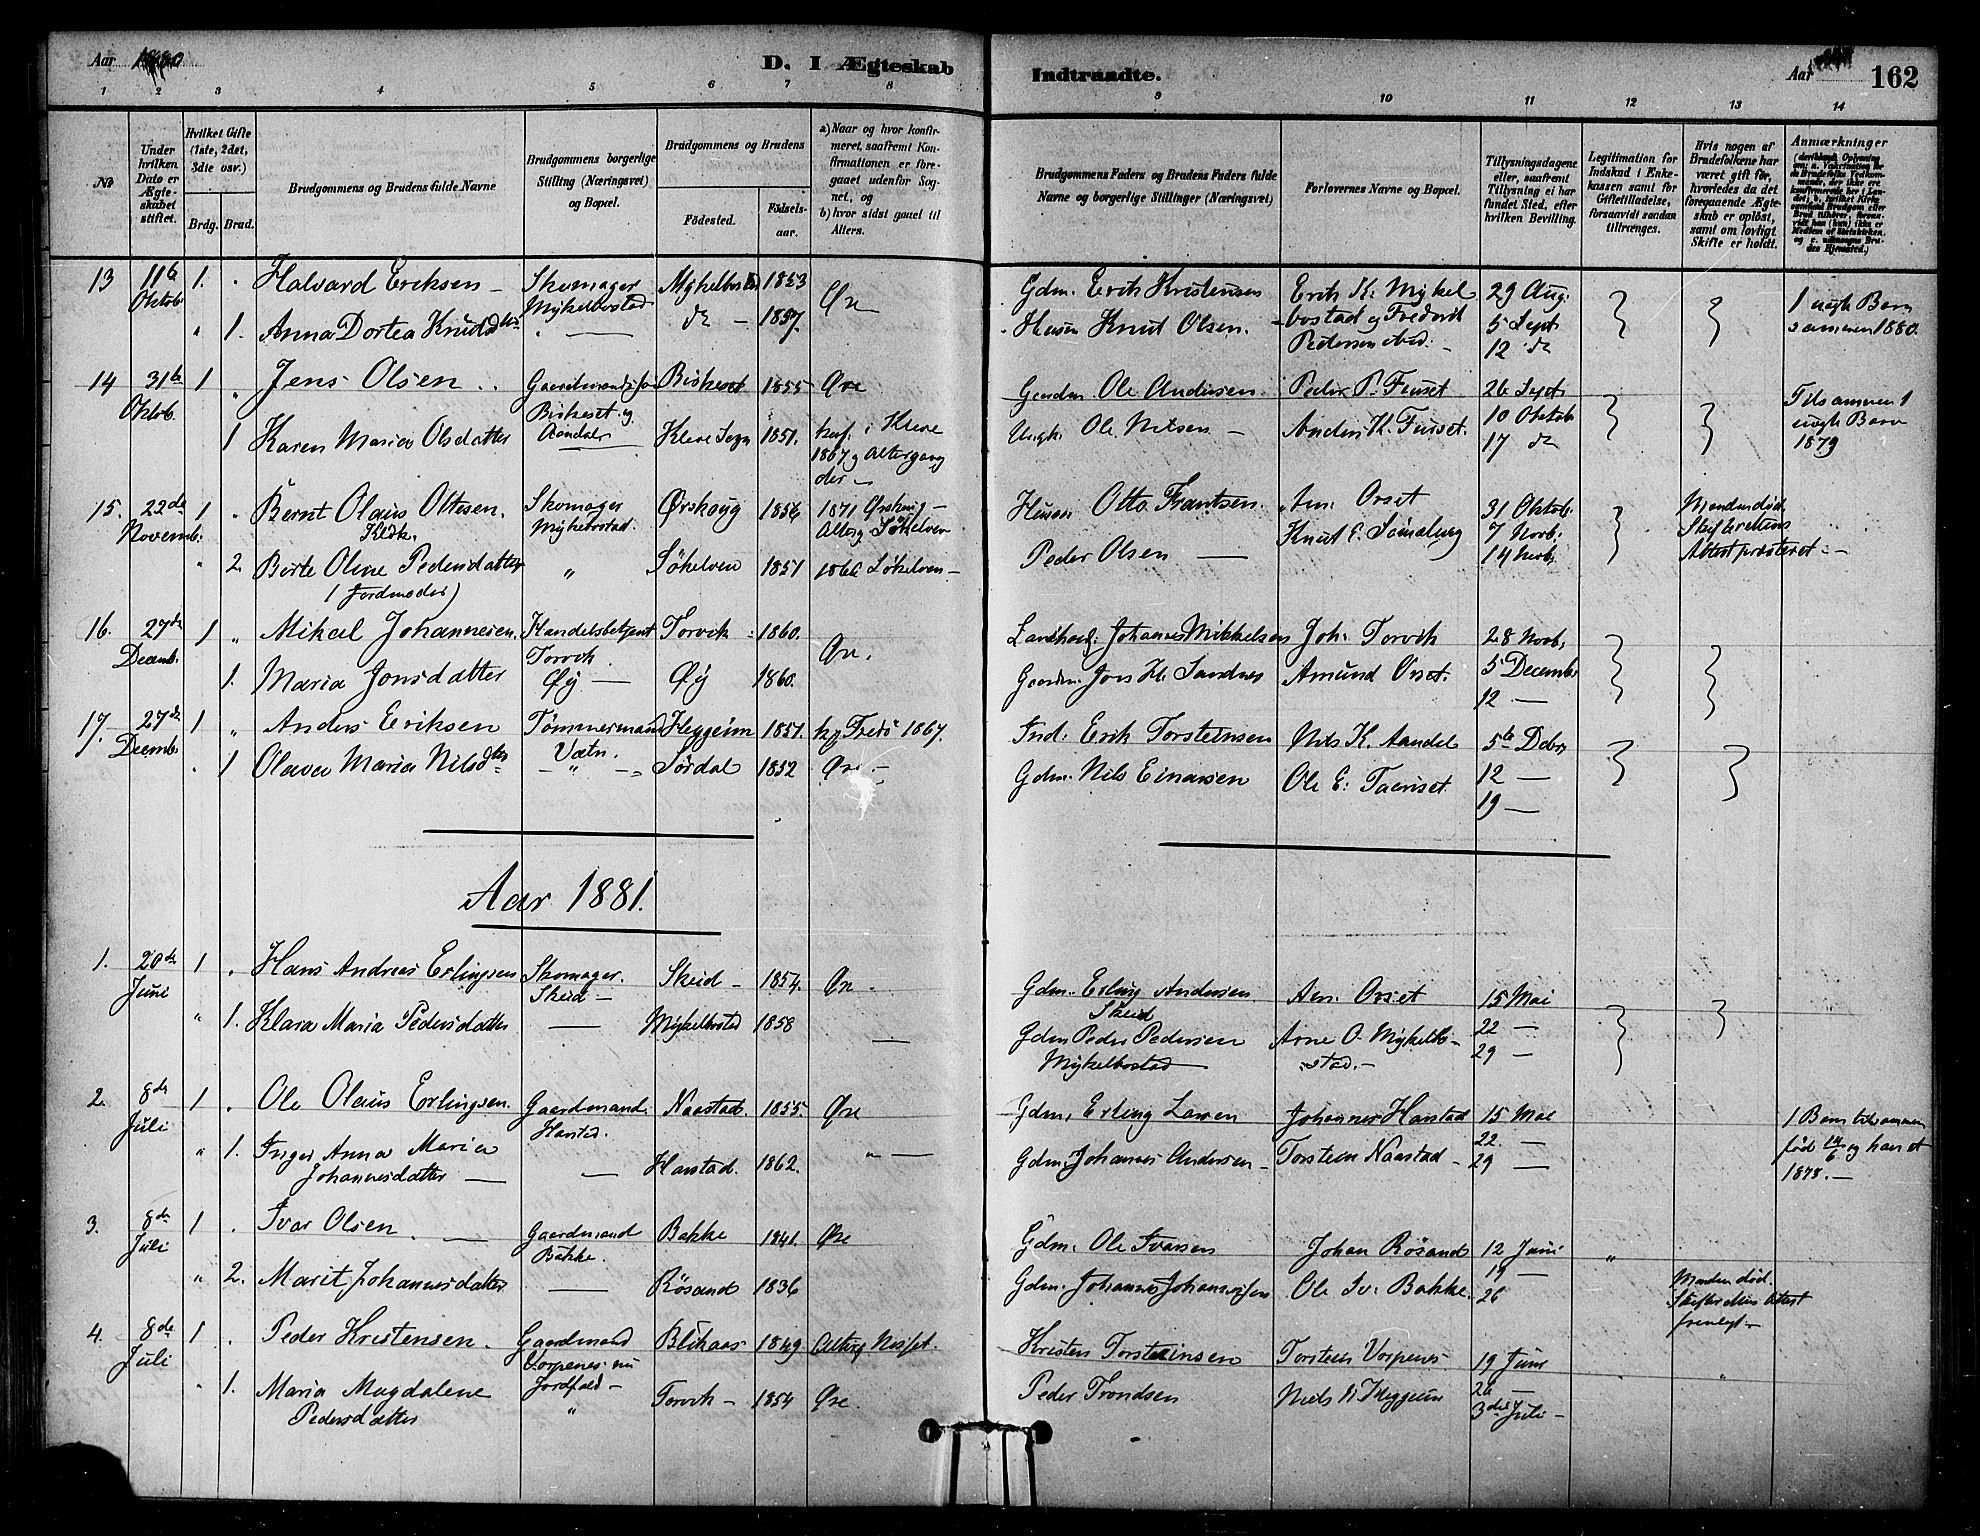 Aar 1880
D. I Ægteskab
Indtraadte.
Aar
162
1 2 3 4 5 6 7 8
9 10 11 12 13 14
No
Under hvilken Dato er Ægteskabet stiftet.
Hvilket Gifte (1ste, 2det, 3die osv.)
Brdg. Brud.
Brudgommens og Brudens fulde Navne
Brudgommens borgerlige Stilling (Næringsvei) og Bopæl.
Brudgommens og Brudens
Fødested.
Fødselsaar.
a) Naar og hvor konfirmeret, saafremt Konfirmationen er foregaaet udenfor Sognet, og
b) hvor sidst gaaet til Alters.
Brudgommens Faders og Brudens Faders fulde Navne og borgerlige Stillinger (Næringsvei)
Forlovernes Navne og Bopæl.
Tillysningsdagene eller, saafremt Tillysning ei har fundet Sted, efter hvilken Bevilling.
Legitimation for Indskud i Enkekassen samt for Giftetilladelse, forsaavidt saadan tiltrænges.
Hvis nogen af Brudefolkene har været gift før, hvorledes da det foregaaende Ægteskab er opløst, samt om lovligt Skifte er holdt.
Anmærkninger
13 11te Oktob 1. " Halvard Eriksen Skomager Mykelbostad Mykelbostad 1853 Øre
" 1. Anna Dortea Knudsdtr do 1857.
Gdm. Erik Kristensen Erik K. Mykelbostad og Frederik Pedersen 29 Aug. 5 Sept 12 do
Husm Knut Olsen.
1 uægte Barn sammen 1880.
14 31te Oktob. 1 " Jens Olsen Gaardmandssøn Birkeset og Aandal Birkeset 1855 Øre
1 Karen Maria Olsdatter Kleve Sogn 1851. konf. i Kleve 1867 og Altergang der
Gaardm Ole Andersen Peder P. Furset 26 Sept
Ungk. Ole Nilsen Anders K. Furset. 10 Oktob 17 do
Tilsammen 1 uægte Barn 1879
15. 22de Novemb. 1 " Bernt Olaus Ottesen. Skomager Mykelbostad. Ørskoug 1856 1871 Ørskoug Alterg Søkelven
" 2 Berte Oline Pedersdatter (Jordmoder) " Søkelven 1851 1866 Søkelven
Husm Otto Frantsen Arn. Orset 31 Oktob.
Peder Olsen Knut E. 7 Novb. 14 Novb.
Manden død. Skifterettens Attest præsteret.
16. 27de Decemb. 1 " Mikal Johannesen. Handelsbetjent Torvik Torvik 1860. Øre.
1. Maria Jonsdatter Øy Øy 1860.
Johannes Mikkelsen Joh. Torvik 28 Novb.
Gaardm. Jon H. Sandnes Amund Orset. 5 Decemb. 12
17. 27de Decemb. 1 " Anders Eriksen Tømmermand Vatn. Heggeim 1851. Fredø 1867.
" 1 Olava Maria Nilsdtr " Sørdal 1852 Øre
Ind. Erik Torsteinsen Nils K. Aandal 5te Debr
Gdm. Nils Einarsen Ole E. 12 19
Aar 1881.
1. 20de Juni 1 " Hans Andreas Erlingsen Skomager. Skeid Skeid 1854. Øre
" 1. Klara Maria Pedersdatter Mykelbostad 1858
Gdm. Erling Andersen Skeid Arn. Orset 15 Mai
Gdm Peder Pedersen Mykelbostad Arne O. Mykelbostad. 22 29
2. 8de Juli 1 " Ole Olaus Erlingsen. Gaardmand. Hanstad. Naastad. 1855. Øre
" 1. Inger Anna Maria Johannesdatter Hanstad. 1862. "
Gdm. Erling Larsen Johannes Hanstad 15 Mai
Gdm. Johannes Andersen Torstein Naastad 22. 29
1 Barn tilsammen fød 14/6 og han et 1878.
3. 8de Juli 1 " Ivar Olsen Gaardmand Bakke. Bakke 1841. Øre
" 2. Marit Johannesdatter Røsand 1836
Gdm. Ole Ivarsen Johan Røsand 12 Juni "
Gdm. Johannes Johannesen Ole Iv. Bakke. 19 26
Manden død. Skifterettens Attest fremlagt
4. 8de Juli 1 " Peder Kristensen. Gaardmand Vorpenes nu Jordfald Blikaas 1849 Alterg Nesset.
" 1. Maria Magdalene Pedersdatter " Torvik 1854 Øre.
Kristen Torsteinsen Torstein Vorpenes 19 Juni
Peder Trondsen Niels N Heggeim 26 3die Juli